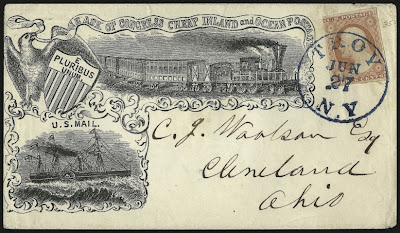 BY ACT OF CONGRESS CHEAP INLAND and OCEAN POSTAGE
E PLURIBUS
UNUM
U.S. MAIL.
U.S. POSTAGE
TROY
JUN
27
N.Y.
C. J. Woolson Esq
Cleveland
Ohio